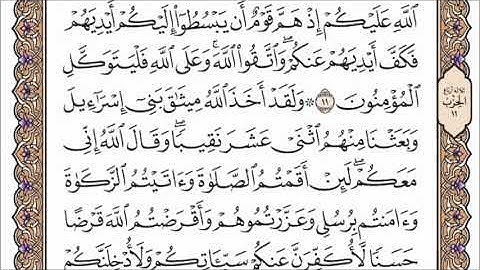 ٱللَّهِ عَلَيْكُمْ إِذْ هَمَّ قَوْمٌ أَن يَبْسُطُوٓا۟ إِلَيْكُمْ أَيْدِيَهُمْ
فَكَفَّ أَيْدِيَهُمْ عَنكُمْ ۖ وَٱتَّقُوا۟ ٱللَّهَ ۚ وَعَلَى ٱللَّهِ فَلْيَتَوَكَّلِ
ٱلْمُؤْمِنُونَ ١١ ۞ وَلَقَدْ أَخَذَ ٱللَّهُ مِيثَٰقَ بَنِىٓ إِسْرَٰٓءِيلَ
وَبَعَثْنَا مِنْهُمُ ٱثْنَىْ عَشَرَ نَقِيبًا ۖ وَقَالَ ٱللَّهُ إِنِّى
مَعَكُمْ ۖ لَئِنْ أَقَمْتُمُ ٱلصَّلَوٰةَ وَءَاتَيْتُمُ ٱلزَّكَوٰةَ
وَءَامَنتُم بِرُسُلِى وَعَزَّرْتُمُوهُمْ وَأَقْرَضْتُمُ ٱللَّهَ قَرْضًا
حَسَنًا لَّأُكَفِّرَنَّ عَنكُمْ سَيِّـَٔاتِكُمْ وَلَأُدْخِلَنَّكُمْ
ٱلْحِزْبِ
١١